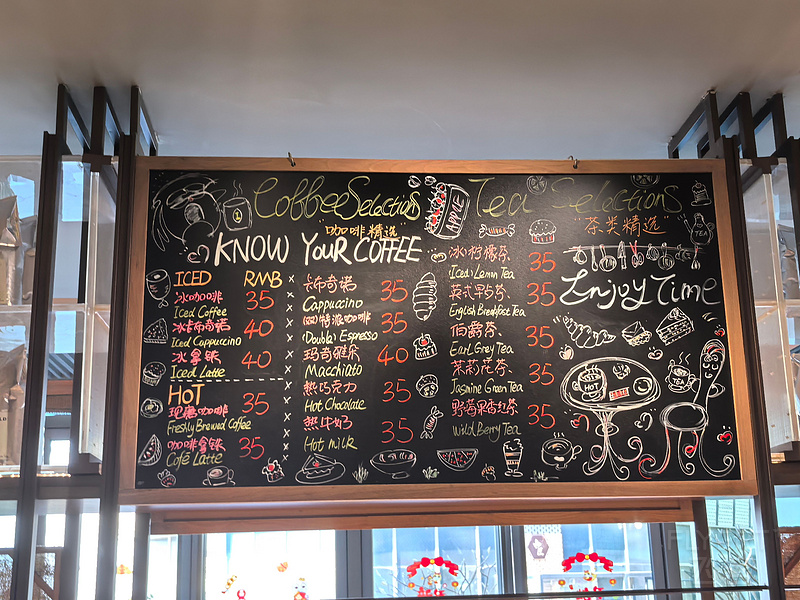 Coffee Selections
"咖啡精选"
KNOW YOUR COFFEE
ICED RMB
冰咖啡 35
Iced Coffee
冰卡布奇诺 40
Iced Cappuccino
冰拿铁 40
Iced Latte
HOT
现磨咖啡 35
Freshly Brewed Coffee
咖啡拿铁 35
Café Latte
卡布奇诺 35
Cappuccino
特浓咖啡 35
(Double) Espresso
玛奇雅朵 40
Macchiato
热巧克力 35
Hot Chocolate
热牛奶 35
Hot milk
APPLE
Tea Selections
"茶类精选"
冰柠檬茶 35
(Iced) Lemon Tea
英式早茶 35
English Breakfast Tea
伯爵茶 35
Earl Grey Tea
茉莉花茶 35
Jasmine Green Tea
野莓果香红茶 35
Wild Berry Tea
Enjoy Time
HOT
TEA